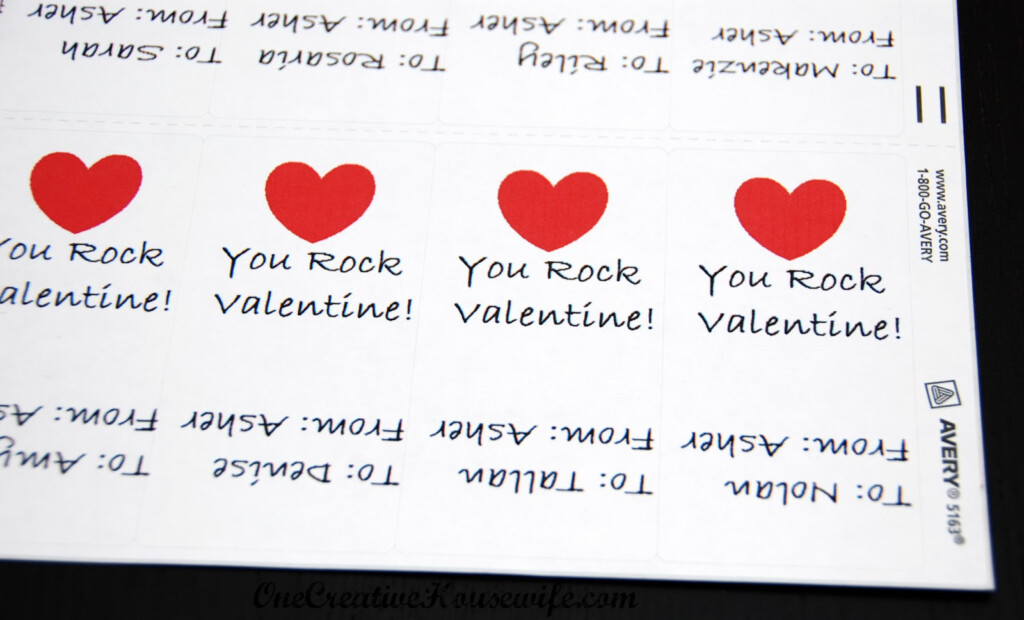 To: Sarah
From: Asher
To: Rosaria
From: Asher
To: Riley
From: Asher
To: Makenzie
From: Asher
You Rock
Valentine!
To: Amy
From: As
You Rock
Valentine!
To: Denise
From: Asher
You Rock
Valentine!
To: Tallan
From: Asher
You Rock
Valentine!
To: Nolan
From: Asher
www.avery.com
1-800-GO-AVERY
AVERY® 5163®
OneCreativeHousewife.com